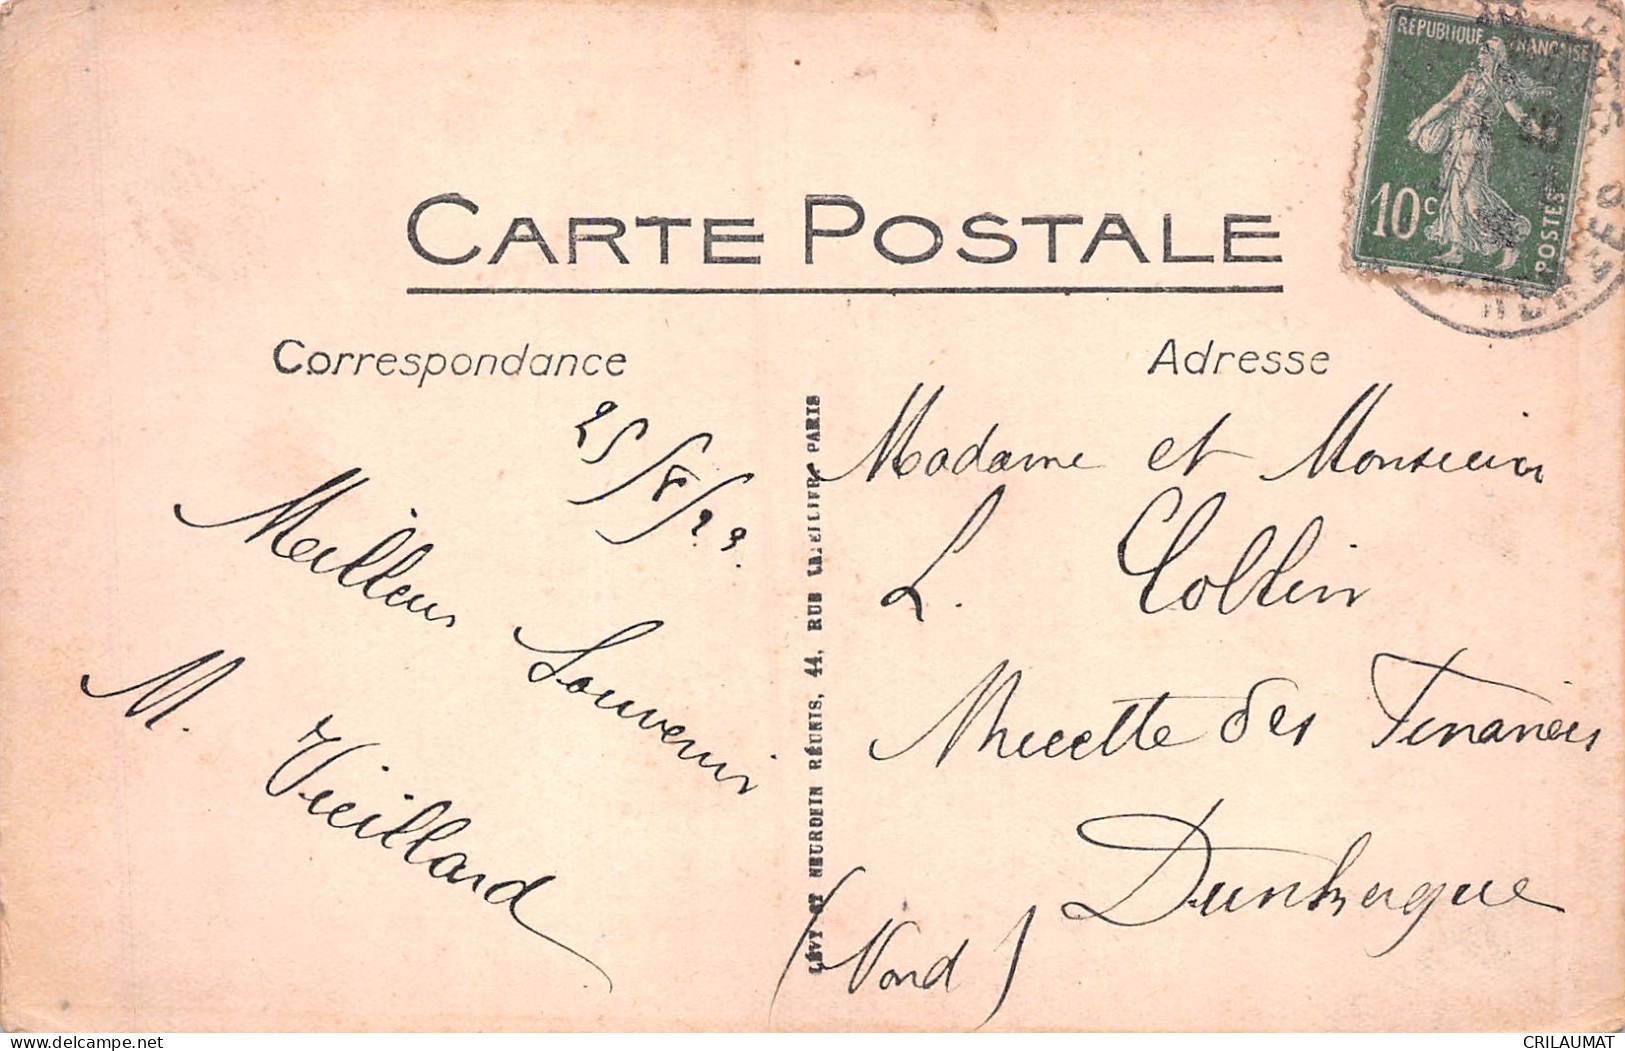 CARTE POSTALE
RÉPUBLIQUE FRANÇAISE
10c
POSTES
Correspondance
Adresse
25/8/23.
Meilleurs Souvenirs
M. Vieillard
LÉVY ET NEURDEIN RÉUNIS, 44, RUE LETELLIER, PARIS
Madame et Monsieur
L. Collin
Recette des Finances
Dunkerque
(Nord)
www.delcampe.net
CRILAUMAT